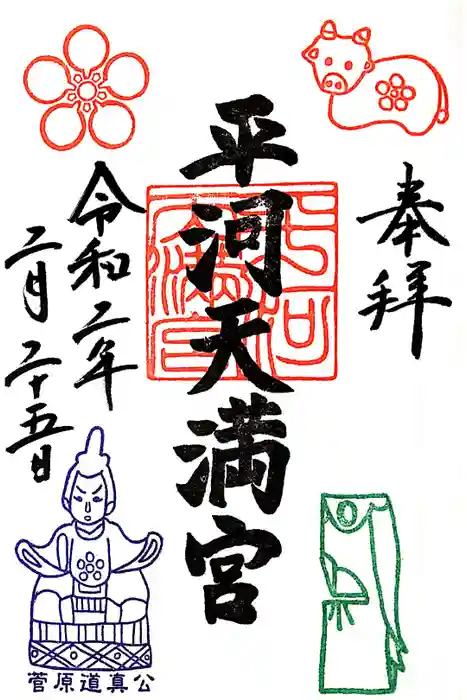 奉拝
平河天満宮
令和二年
二月二十五日
菅原道真公